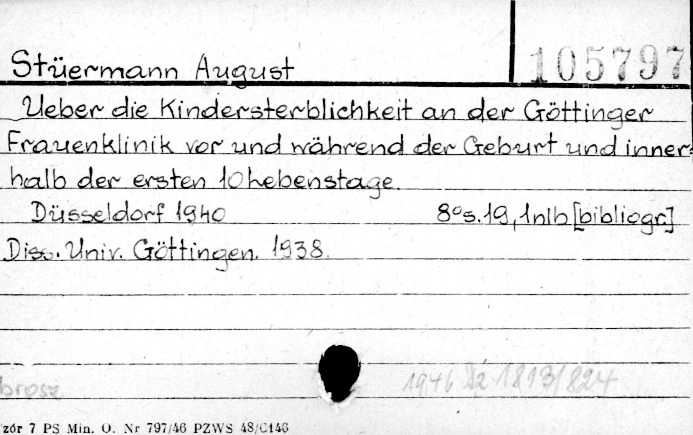 Stüermann August
105797
Ueber die Kindersterblichkeit an der Göttinger
Frauenklinik vor und während der Geburt und inner=
halb der ersten 10 Lebenstage.
Düsseldorf 1940 8°s.19,1nlb[bibliogr.]
Diss. Univ. Göttingen. 1938.
brosz
1946 Dz 1813/824
zór 7 PS Min. O. Nr 797/46 PZWS 48/C146